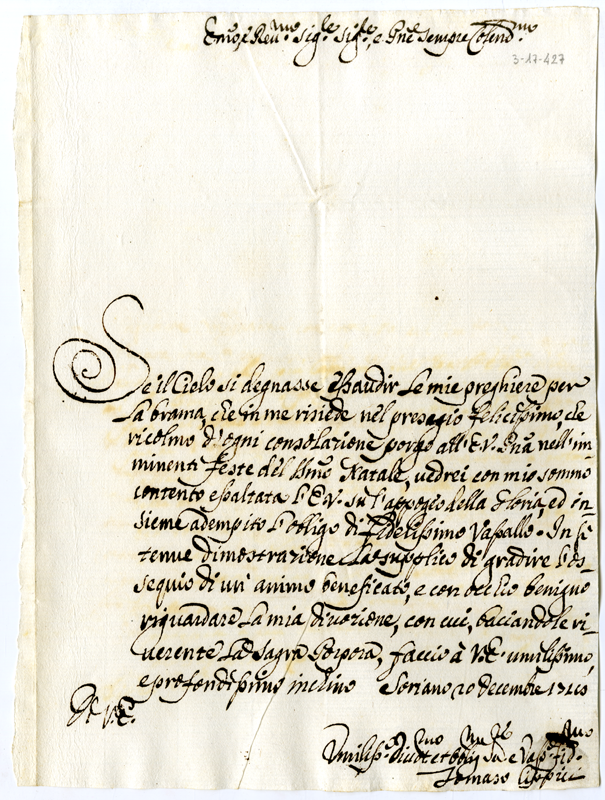 Em̃o e Rev.mo Sig.re Sig.re, e Pñe sempre Colend.mo
3-17-427
Se il Cielo si degnasse essaudir le mie preghiere per
la brama, che in me risiede nel presagio felicissimo, che
ricolmo d'ogni consolazione porgo all'E.V. nell'im-
minenti feste del Natale, vedrei con mio sommo
contento essaltata l'E.V. su l'apogeo della Gloria, ed in-
sieme adempito l'obligo di fidelissimo Vassallo. In sì
tenue dimostrazione la supplico di gradire l'os-
sequio di un animo beneficato, e con occhio benigno
riguardare la mia divozione, con cui, baciandole ri-
verente la Sagra Porpora, faccio à V.E. umilissimo,
e profondissimo inchino Soriano 20 decembre
Di V.E.
Umiliss.o Divot.mo et Obl.mo Se.re e Vass.
Tomaso